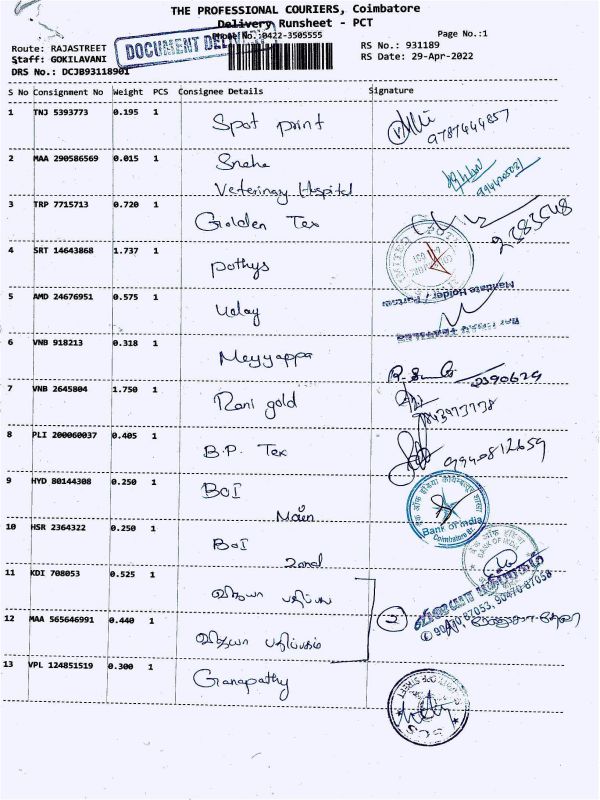 THE PROFESSIONAL COURIERS, Coimbatore
Delivery Runsheet - PCT
Phone No.:0422-3505555
Page No.:1
Route: RAJASTREET
RS No.: 931189
Staff: GOKILAVANI
RS Date: 29-Apr-2022
DRS No.: DCJB93118901
DOCUMENT DEL
S No Consignment No Weight PCS Consignee Details Signature
1 TNJ 5393773 0.195 1 Spot print
9787444857
2 MAA 290586569 0.015 1 Sneha
Veterinary Hospital
3 TRP 7715713 0.720 1 Golden Tex
2383548
4 SRT 14643868 1.737 1 Pothys
Mandate Holder / Partner
5 AMD 24676951 0.575 1 Uday
6 VNB 918213 0.318 1 Meyyappa
2390629
7 VNB 2645804 1.750 1 Rani gold
8 PLI 200060037 0.405 1 B.P. Tex
9940812659
9 HYD 80144308 0.250 1 BOI
Main
Bank of India
Coimbatore Br.
10 HSR 2364322 0.250 1 BoI
Zonal
BANK OF INDIA
11 KDI 708053 0.525 1 விஜயா பதிப்பகம்
2
90470-87053, 90470-87058
12 MAA 565646991 0.440 1 விஜயா பதிப்பகம்
13 VPL 124851519 0.300 1 Ganapathy